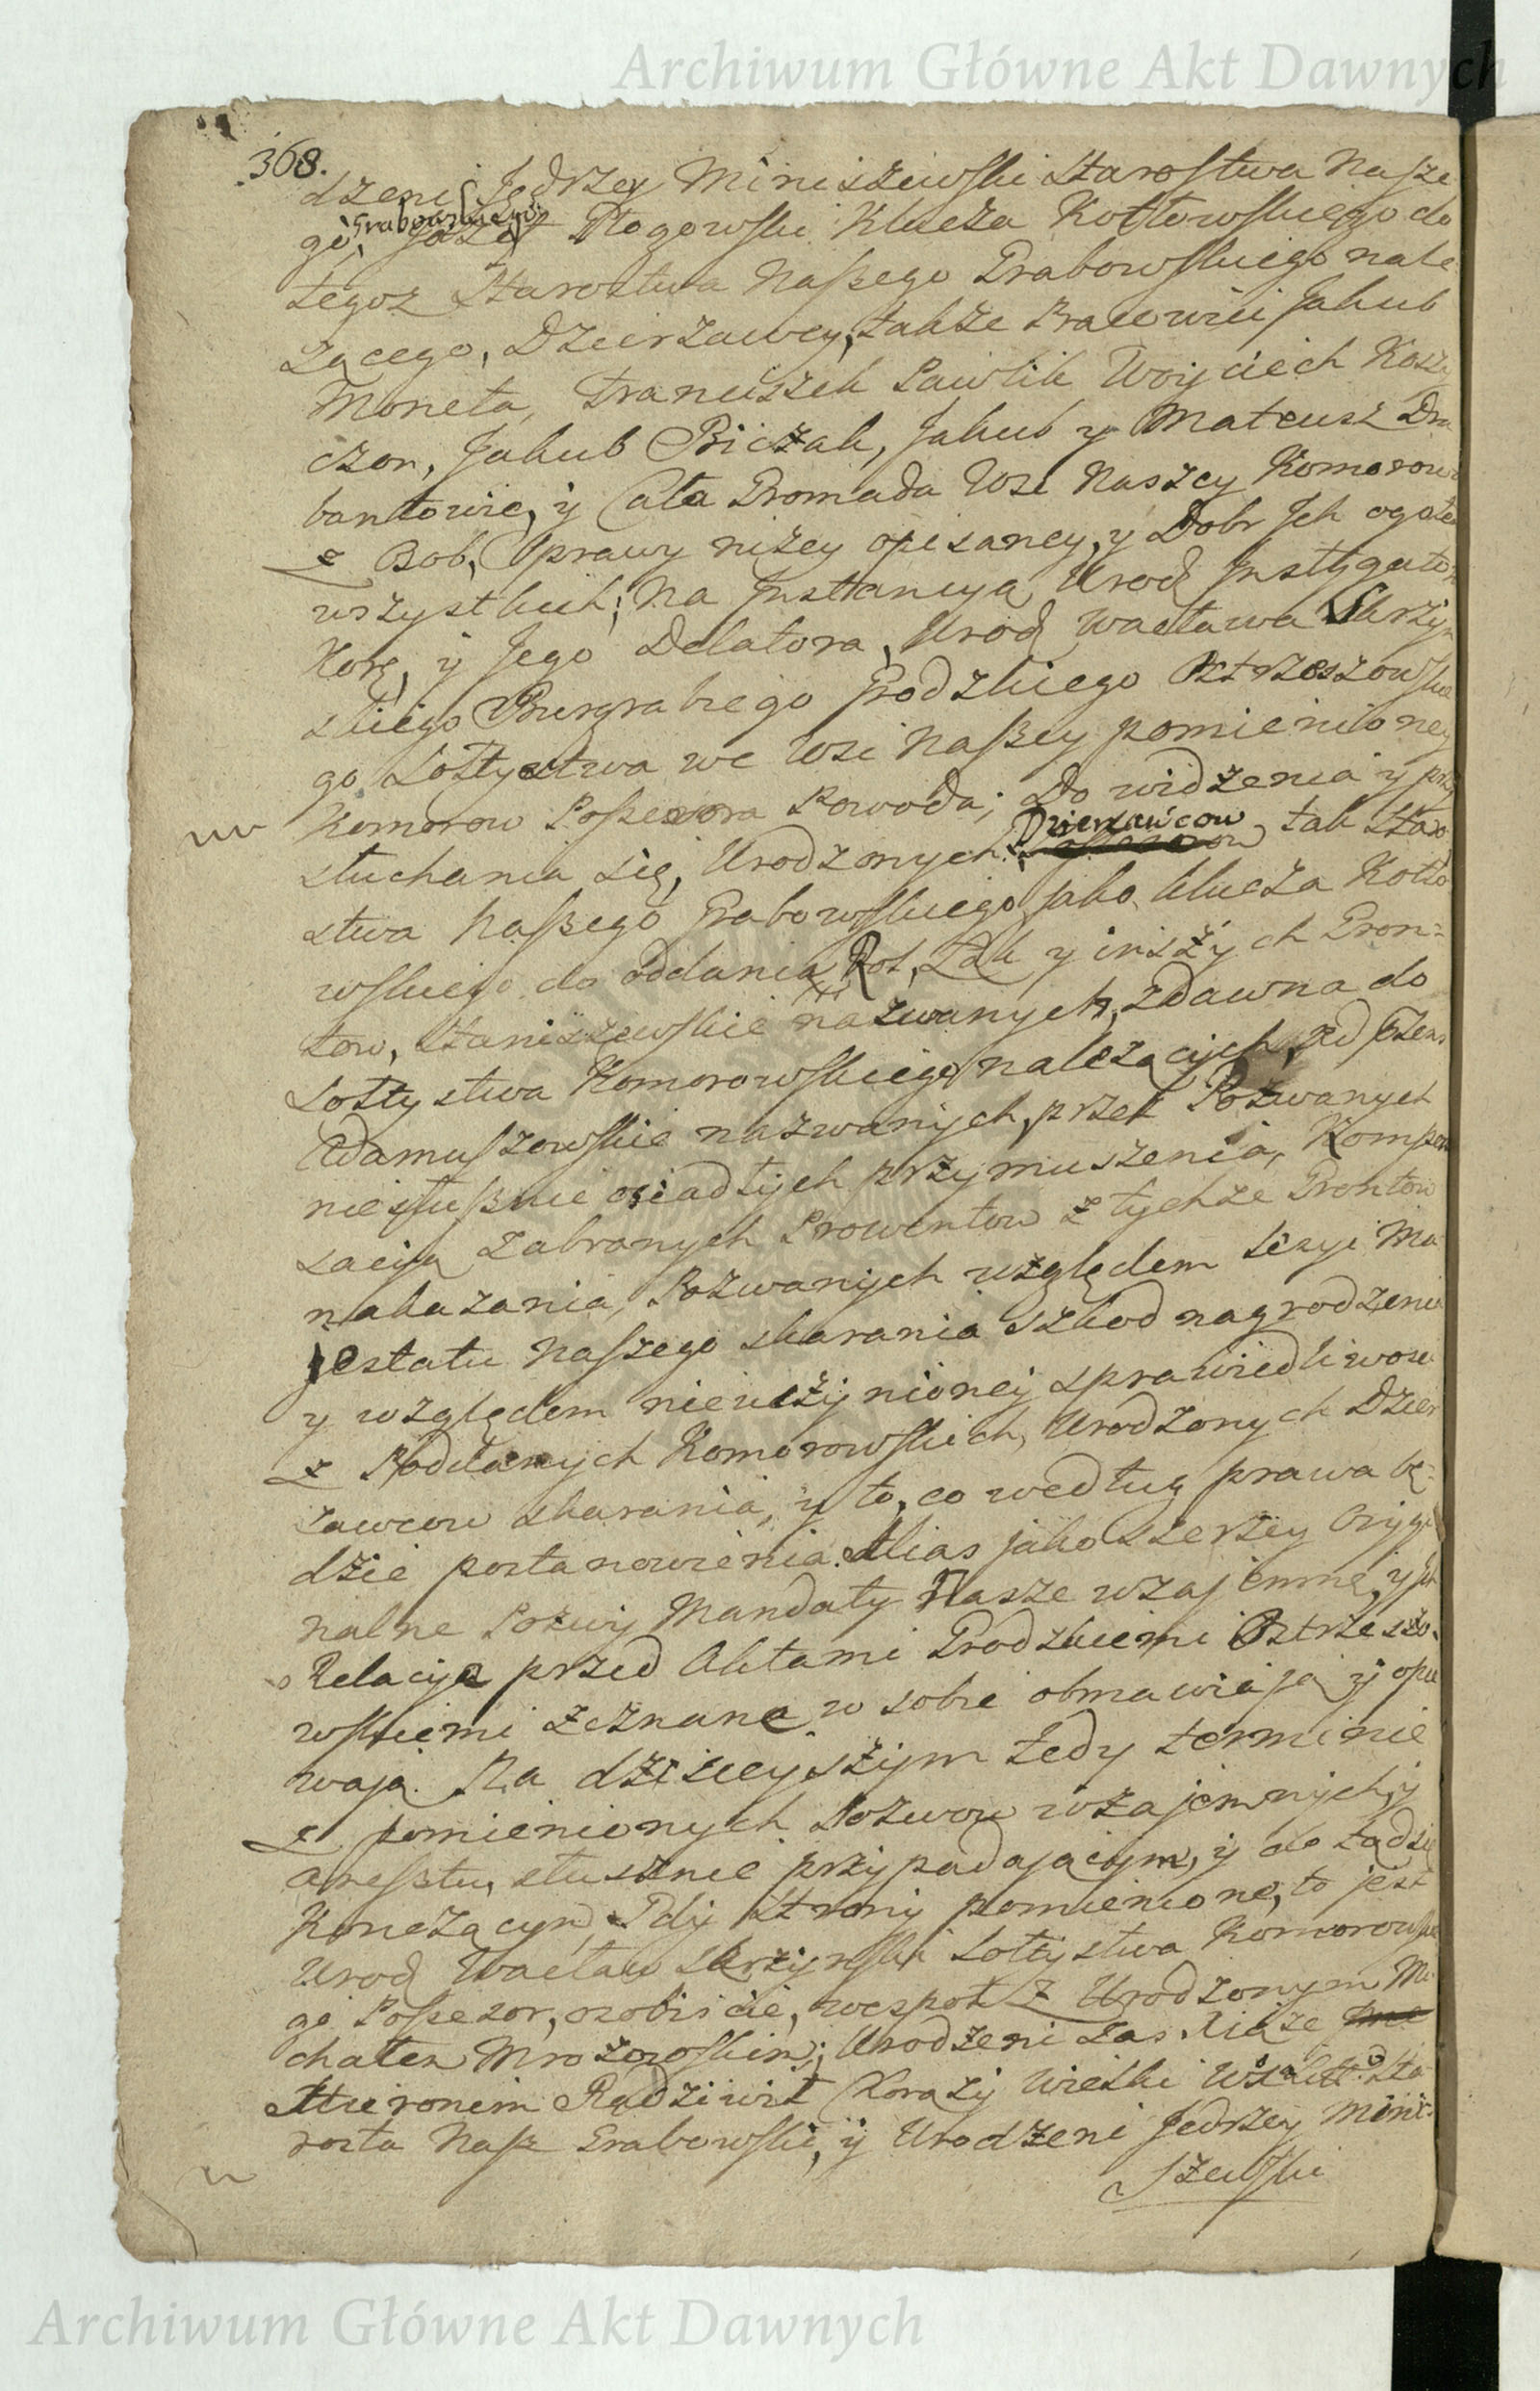 Archiwum Główne Akt Dawnych
368.
dzeni Jędrzey Miniszewski Starostwa Nasze
Grabowskiego
go, Józef Rogowski Klucza Kotłowskiego do
tegoz Starostwa Naszego Grabowskiego nale
zącego, Dzierzawcy, także Pracowici Jakub
Moneta, Franciszek Pawlik Woyciech Kosz
czor, Jakub Biczak, Jakub y Mateusz Dra
bantowie, y Cała Gromada Wsi Naszey Komorow
z Osob, Sprawy nizey opisaney, y Dobr Ich ogołem
wszystkich; Na Instancyą Urod Instygatora
Kory, y Jego Delatora, Urod Wacława Skrzyn
skiego Burgrabiego Grodzkiego Ostrzeszowskie
go Sołtystwa we Wsi Naszey pomienioney
Komorow Possesora Powoda; Do widzenia y przy
Dzierzawcow
słuchania się, Urodzonych tak Staro
stwa Naszego Grabowskiego jako Klucza Kotło
wskiego do oddania Rol, Łąk y inszych Gron=
tow, Staniszewskie nazwanych, zdawna do
Sołtystwa Komorowskiego nalezących, od
Adamuszowskie nazwanych, przez Pozwanych
niesłusznie osiadłych przymuszenia, Kompen
sacyą Zabranych Prowentow z tychze Grontow
nakazania, Pozwanych względem lezyi Ma
jestatu Naszego skarania szkod nagrodzenia
y względem nieuczynioney sprawiedliwosci
z Poddanych Komorowskich, Urodzonych Dzier
zawcow skarania, y to, co według prawa bę=
dzie postanowienia. Alias jako szerzey Orygi
nalne Pozwy Mandaty Nasze wzajemne, y Ich
Relacye przed Aktami Grodzkiemi Ostrzeszo=
wskiemi zeznane w sobie obmawiają y opie
wają. Na dzisieyszym tedy terminie
z pomienionych Pozwow wzajemnych, y
aresztu, słusznie przypadającym, y do tąd się
Konczącym, Gdy Strony pomienione, to jest
Urod Wacław Skrzynski Sołtystwa Komorowskie
go Possesor, osobiscie, wespoł z Urodzonym Mi
chałem Mrozowskim; Urodzeni zas Xiąże
Hieronim Radziwił Korąży Wielki W. X. Litt: Sta
rosta Nasz Grabowski, y Urodzeni Jedrzey Minis=
szewski
Archiwum Główne Akt Dawnych